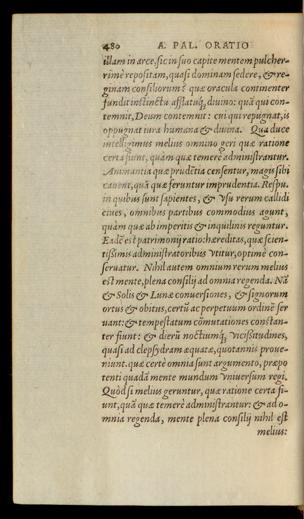 480 Æ. PAL. ORATIO
illam in arce. sic in suo capite mentem pulcher-
rimè repositam, quasi dominam sedere, & re-
ginam consiliorum? quæ oracula continenter
fundit instinctu afflatuq́; diuino: quã qui con-
temnit, Deum contemnit: cui qui repugnat, is
oppugnat iura humana & diuina. Qua duce
intelligimus melius omnino geri quæ ratione
certa fiunt, quàm quæ temerè administrantur.
Animantia quæ prudẽtia censentur, magis sibi
cauent, quã quæ feruntur imprudentia. Respu.
in quibus sunt sapientes, & vsu rerum callidi
ciues, omnibus partibus commodius agunt,
quàm quæ ab imperitis & inquilinis reguntur.
Eadẽ est patrimonij ratio: hæreditas, quæ scien-
tissimis administratoribus vtitur, optimè con-
seruatur. Nihil autem omnium rerum melius
est mente, plena consilij ad omnia regenda. Nã
& Solis & Lunæ conuersiones, & signorum
ortus & obitus, certũ ac perpetuum ordinẽ ser
uant: & tempestatum cõmutationes constan-
ter fiunt: & dierũ noctiumq́; vicissitudines,
quasi ad clepsydram æquatæ, quotannis proue-
niunt. quæ certè omnia sunt argumento, præpo
tenti quadã mente mundum vniuersum regi.
Quòd si melius geruntur, quæ ratione certa fi-
unt, quã quæ temerè administrantur: & ad o-
mnia regenda, mente plena consilij nihil est
melius: